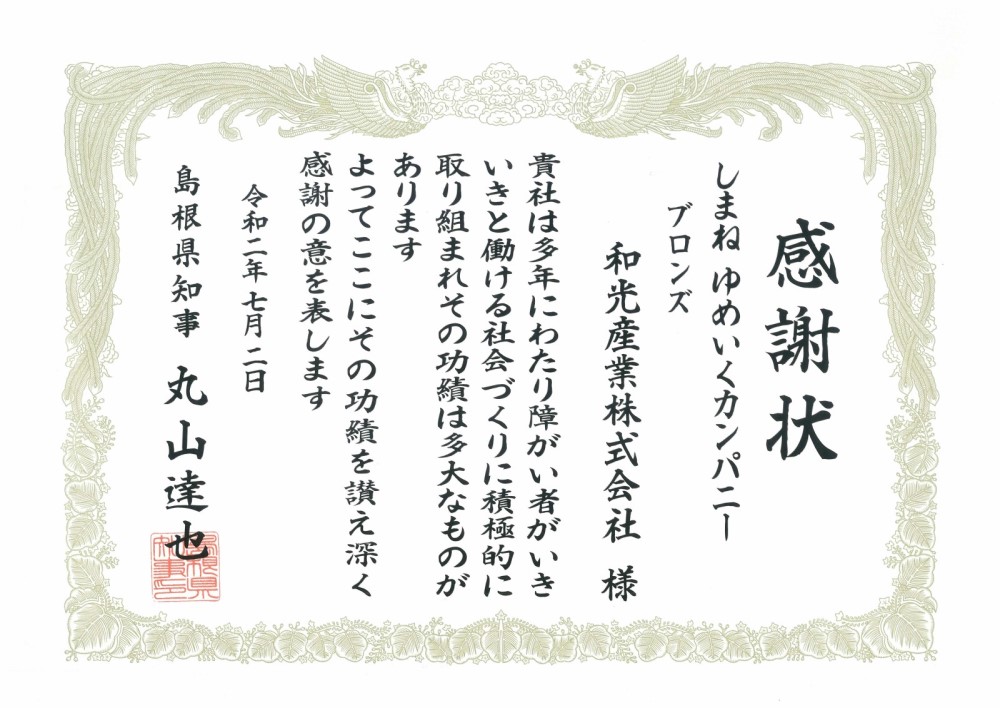 感謝状
しまね ゆめいくカンパニー
ブロンズ
和光産業株式会社 様
貴社は多年にわたり障がい者がいき
いきと働ける社会づくりに積極的に
取り組まれその功績は多大なものが
あります
よってここにその功績を讃え深く
感謝の意を表します
令和二年七月二日
島根県知事 丸山達也
島根県
知事印